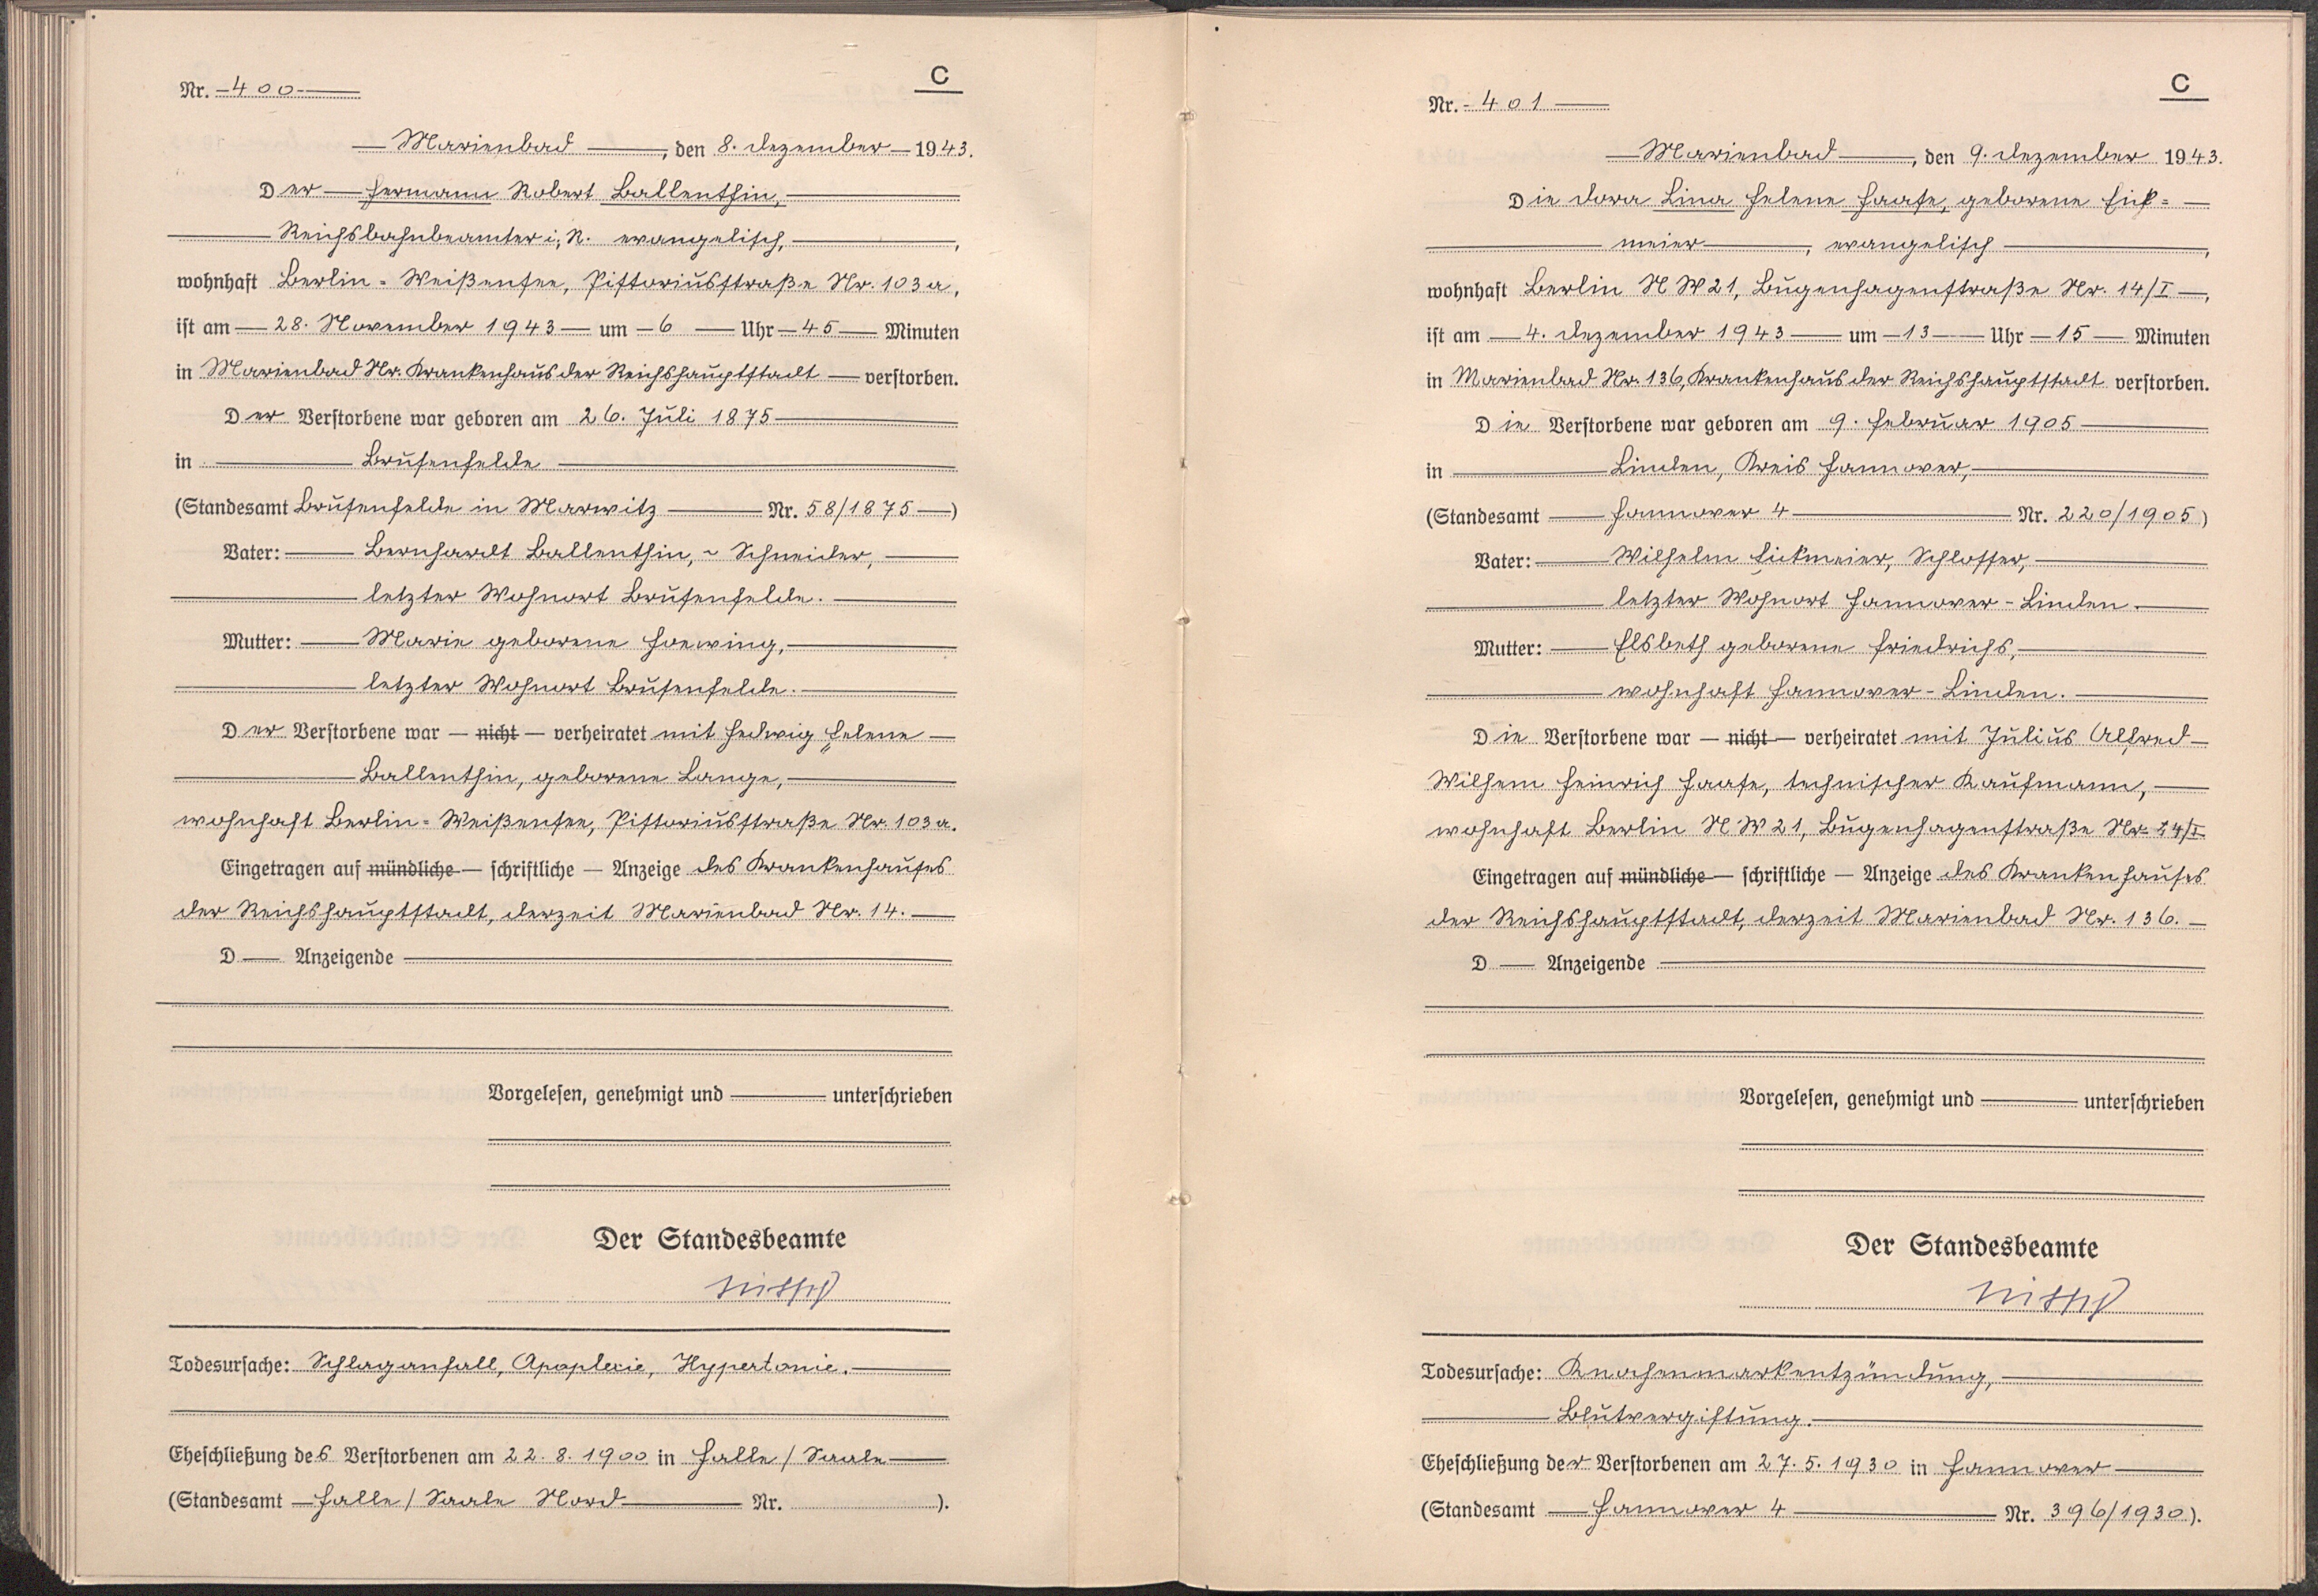 C
Nr. 400
Marienbad, den 8. Dezember 1943.
Der Hermann Robert Ballenthin,
Reichsbahnbeamter i. R. evangelisch,
wohnhaft Berlin-Weißensee, Pistoriusstraße Nr. 103a,
ist am 28. November 1943 um 6 Uhr 45 Minuten
in Marienbad Nr. Krankenhaus der Reichshauptstadt verstorben.
Der Verstorbene war geboren am 26. Juli 1875
in Brusenfelde
(Standesamt Brusenfelde in Marwitz Nr. 58/1875)
Vater: Bernhardt Ballenthin, Schneider,
letzter Wohnort Brusenfelde.
Mutter: Marie geborene Hoewing,
letzter Wohnort Brusenfelde.
Der Verstorbene war — nicht — verheiratet mit Hedwig Helene
Ballenthin, geborene Lange,
wohnhaft Berlin-Weißensee, Pistoriusstraße Nr. 103a.
Eingetragen auf mündliche — schriftliche — Anzeige des Krankenhauses
der Reichshauptstadt, derzeit Marienbad Nr. 14.
D Anzeigende
Vorgelesen, genehmigt und unterschrieben
Der Standesbeamte
Todesursache: Schlaganfall, Apoplexie, Hypertonie.
Eheschließung des Verstorbenen am 22.8.1900 in Halle / Saale
(Standesamt Halle / Saale Nord Nr. ).
C
Nr. 401
Marienbad, den 9. Dezember 1943.
Die Dora Lina Helene Haase, geborene Eick-
meier, evangelisch,
wohnhaft Berlin NW 21, Bugenhagenstraße Nr. 14/I,
ist am 4. Dezember 1943 um 13 Uhr 15 Minuten
in Marienbad Nr. 136, Krankenhaus der Reichshauptstadt verstorben.
Die Verstorbene war geboren am 9. Februar 1905
in Linden, Kreis Hannover,
(Standesamt Hannover 4 Nr. 220/1905)
Vater: Wilhelm Eickmeier, Schlosser,
letzter Wohnort Hannover-Linden.
Mutter: Elsbeth geborene Friedrichs,
wohnhaft Hannover-Linden.
Die Verstorbene war — nicht — verheiratet mit Julius Alfred
Wilhem Heinrich Haase, technischer Kaufmann,
wohnhaft Berlin NW 21, Bugenhagenstraße Nr. 14/I
Eingetragen auf mündliche — schriftliche — Anzeige des Krankenhauses
der Reichshauptstadt, derzeit Marienbad Nr. 136.
D Anzeigende
Vorgelesen, genehmigt und unterschrieben
Der Standesbeamte
Todesursache: Knochenmarkentzündung,
Blutvergiftung.
Eheschließung der Verstorbenen am 27.5.1930 in Hannover
(Standesamt Hannover 4 Nr. 396/1930).